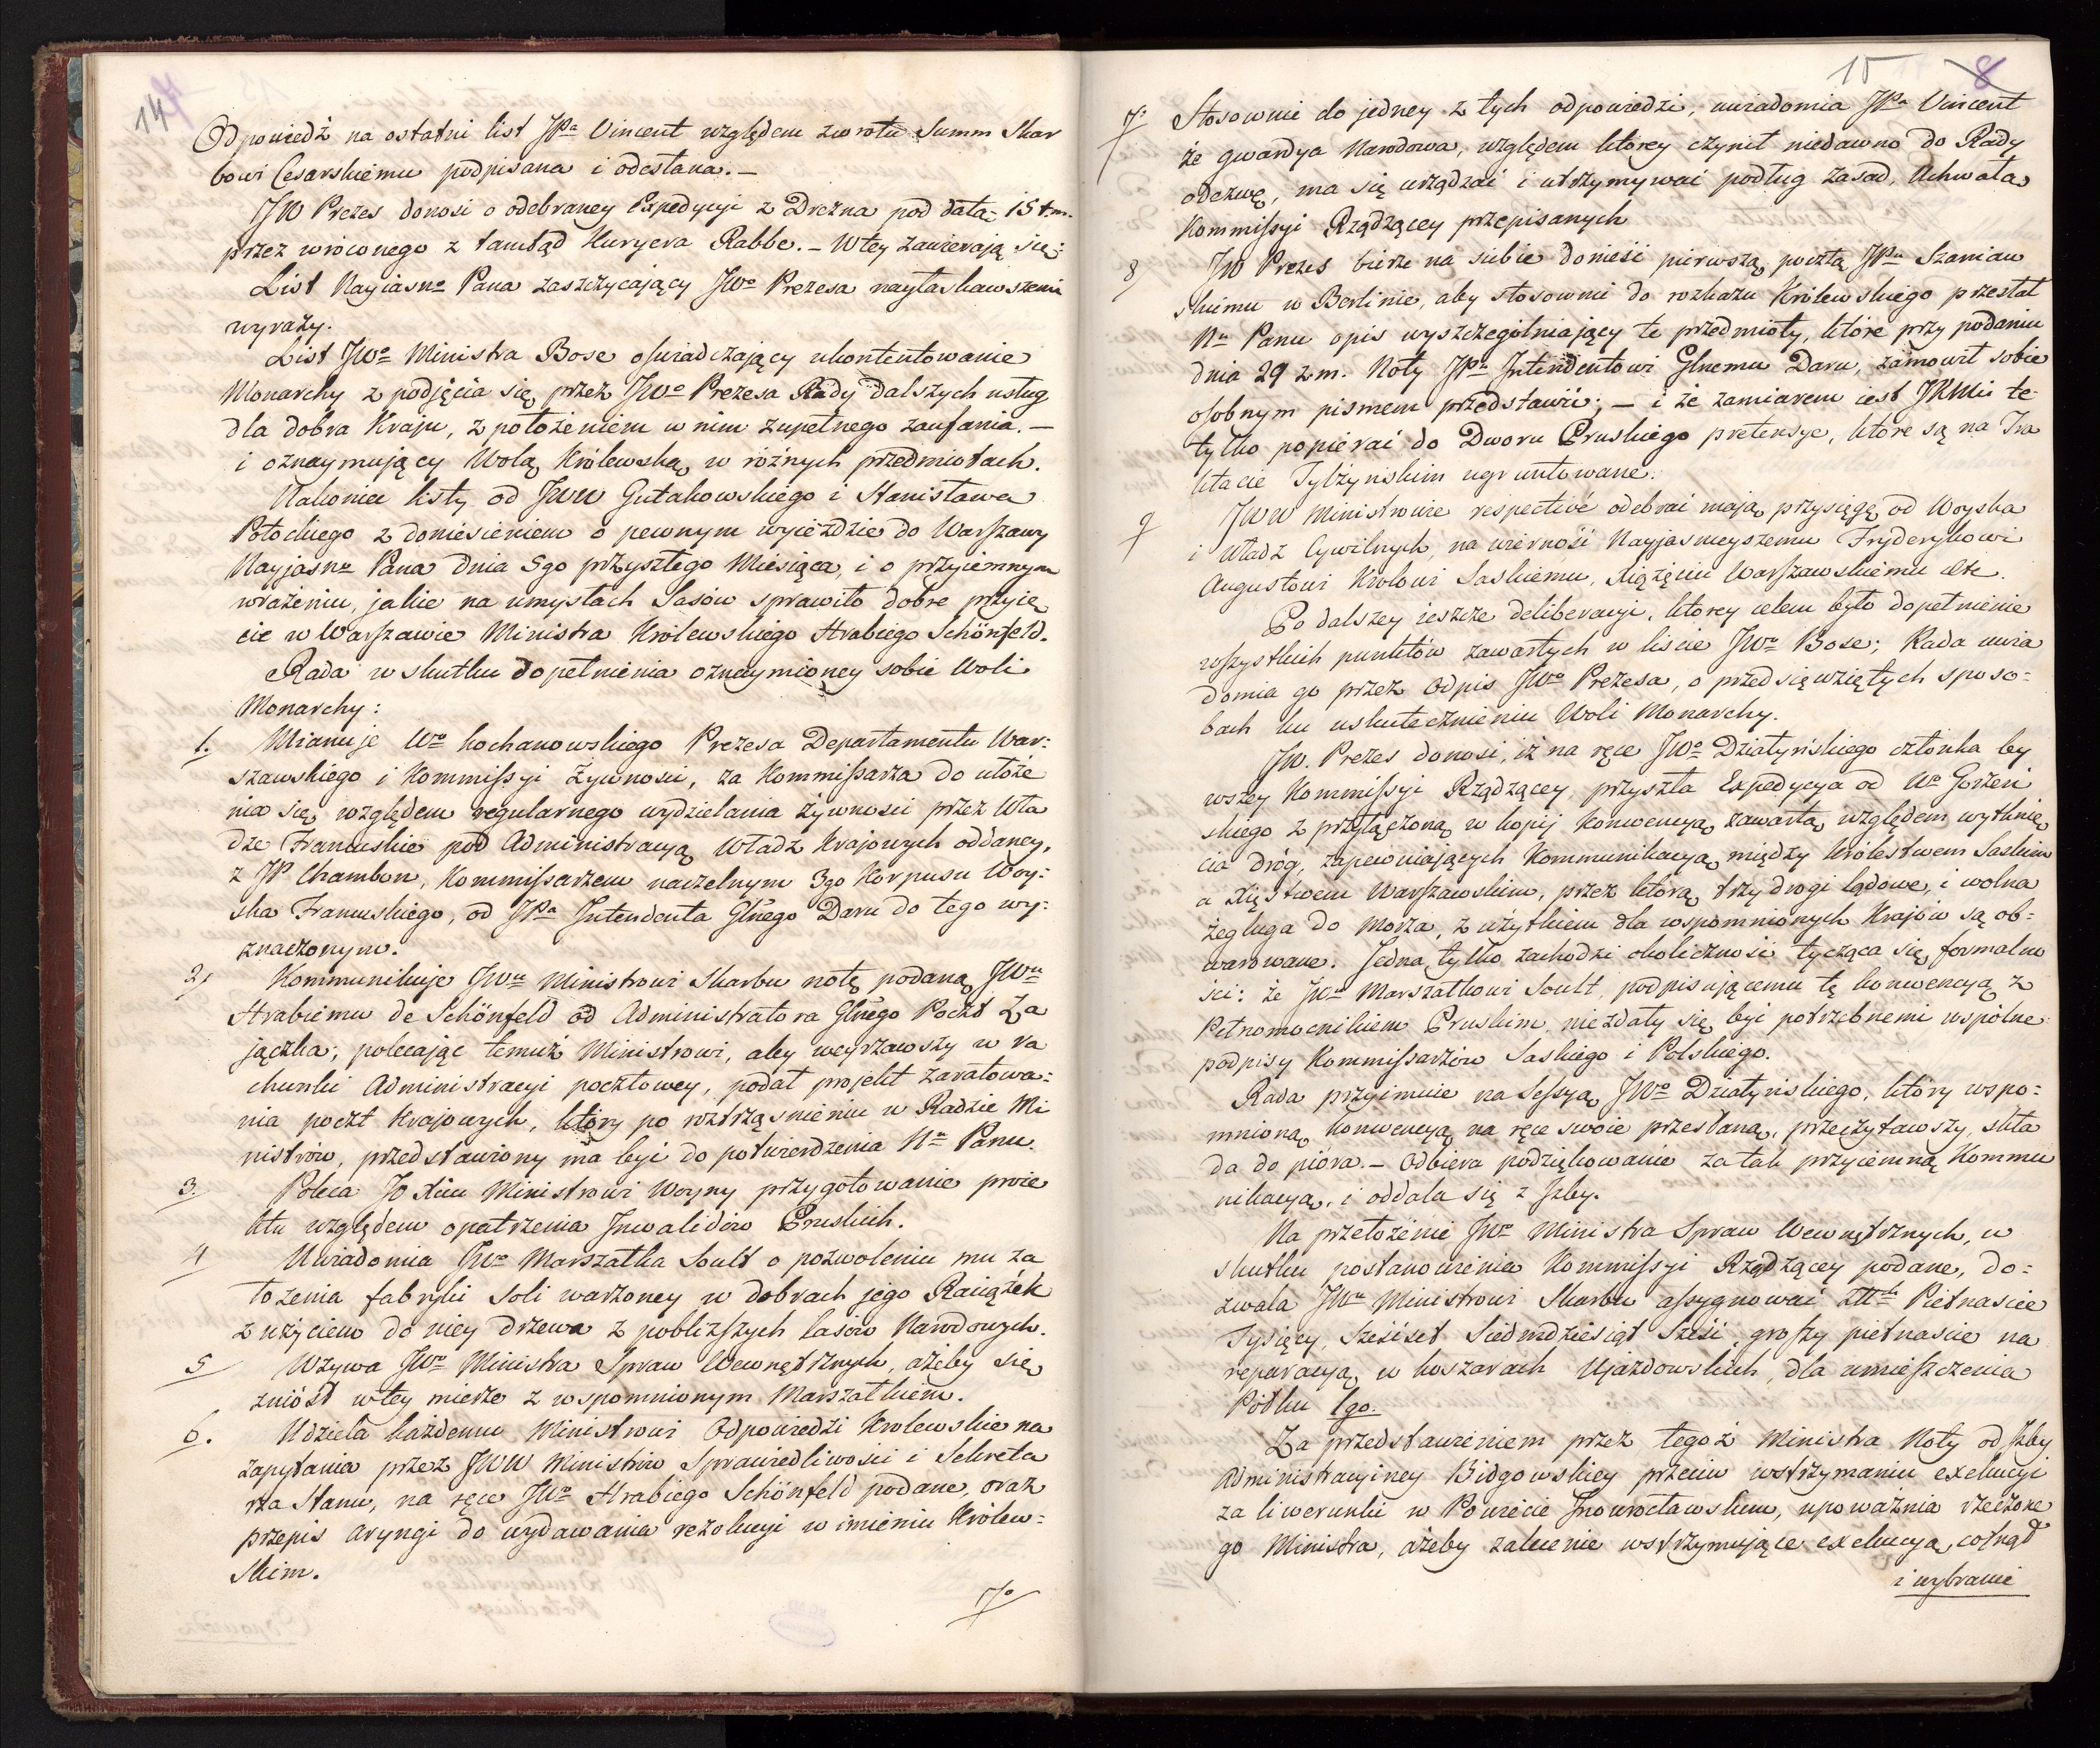 14
Odpowiedź na ostatni list JPa Vincent względem zwrotu Summ Skar
bowi Cesarskiemu podpisana i odesłana. –
JW Prezes donosi o odebraney Expedycyi z Drezna pod datą 15 t.m.
przez wróconego z tamtąd Kuryera Rabbe. – W tey zawierają się:
List Nayiasno Pana zaszczycający JWo Prezesa nayłaskawszemi
wyrazy.
List JWo Ministra Bose oświadczający ukontentowanie
Monarchy z podjęcia się przez JWo Prezesa Rady dalszych usług
dla dobra Kraju, z położeniem w nim zupełnego zaufania. –
i oznaymujący Wolą Królewską w różnych przedmiotach.
Nakoniec listy od JWW Gutakowskiego i Stanisława
Potockiego z doniesieniem o pewnym wyieździe do Warszawy
Nayjasno Pana dnia 5go przyszłego Miesiąca, i o przyiemnym
wrażeniu, jakie na umysłach Sasów sprawiło dobre przyię
cie w Warszawie Ministra Królewskiego Hrabiego Schönfeld.
Rada w skutku dopełnienia oznaymioney sobie Woli
Monarchy:
1. Mianuje Wo Kochanowskiego Prezesa Departamentu War:
szawskiego i Kommissyi Żywności, za Kommissarza do ułoże
nia się względem regularnego wydzielania żywności przez Wła
dze Francuskie pod Administracyą Władz Krajowych oddaney,
z JP Chambon, Kommissarzem naczelnym 3go Korpusu Woy:
ska Francuskiego, od JPa Intendenta Glnego Daru do tego wy:
znaczonym.
2. Kommunikuje JWu Ministrowi Skarbu notę podaną JWu
Hrabiemu de Schönfeld od Administratora Glnego Poczt Za
jączka; polecając temuż Ministrowi, aby weyrzawszy w ra
chunki Administracyi pocztowey, podał projekt zaratowa:
nia poczt Krajowych, który po roztrząśnieniu w Radzie Mi
nistrów, przedstawiony ma być do potwierdzenia Nu Panu.
3. Poleca JO Xciu Ministrowi Woyny przygotowanie proie
ktu względem opatrzenia Inwalidów Pruskich.
4 Uwiadomia JWo Marszałka Soult o pozwoleniu mu za
łożenia fabryki soli warzoney w dobrach jego Raciążek
z użyciem do niey drzewa z pobliższych lasów Narodowych.
5 Wzywa JWo Ministra Spraw Wewnętrznych, ażeby się
zniósł w tey mierze z wspomnionym Marszałkiem.
6. Udziela każdemu Ministrowi Odpowiedzi Królewskie na
zapytania przez JWW Ministrów Sprawiedliwości i Sekreta
rza Stanu, na ręce JWo Hrabiego Schönfeld podane, oraz
przepis aryngi do wydawania rezolucyi w imieniu Królew:
skim.
7o
15 8
7o Stosownie do jedney z tych odpowiedzi, uwiadomia JPa Vincent
że gwardya Narodowa, względem którey czynił niedawno do Rady
odezwę, ma się urządzać i utrzymywać podług zasad, Uchwałą
Kommissyi Rządzącey przepisanych
8 JW Prezes bierze na siebie donieść pierwszą pocztą JPu Szaniaw
skiemu w Berlinie, aby stosownie do rozkazu Królewskiego przesłał
Nu Panu opis wyszczególniający te przedmioty, które przy podaniu
dnia 29 z.m. Noty JPu Intendentowi Glnemu Daru, zamówił sobie
osobnym pismem przedstawić; – i że zamiarem iest JKMci te
tylko popierać do Dworu Pruskiego pretensye, które są na Tra
ktacie Tylżyńskim ugruntowane.
9 JWW Ministrowie respectivé odebrać mają przysięgę od Woyska
i Władz Cywilnych, na wierność Nayjasneyszemu Fryderykowi
Augustowi Królowi Saskiemu, Xiążęciu Warszawskiemu etc.
Po dalszey ieszcze deliberacyi, którey celem było dopełnienie
wszystkich punktów zawartych w liście JWo Bose; Rada uwia
domia go przez Odpis JWo Prezesa, o przedsięwziętych sposo=
bach ku uskutecznieniu Woli Monarchy.
JW. Prezes donosi, iż na ręce JWo Działyńskiego członka by
wszey Kommissyi Rządzącey, przyszła Expedycya od Wo Gorzeń
skiego z przyłączoną w kopij Konwencyą zawartą względem wytknię
cia dróg, zapewniających Kommunikacyą między Królestwem Saskim
a Xięstwem Warszawskim, przez którą trzy drogi lądowe, i wolna
żegluga do morza, z użytkiem dla wspomnionych Krajów są ob=
warowane. Jedna tylko zachodzi okoliczność tycząca się formalno
ści: że JWu Marszałkowi Soult, podpisującemu tę konwencyą z
Pełnomocnikiem Pruskim, niezdały się być potrzebnemi wspólne
podpisy Kommissarzów Saskiego i Polskiego.
Rada przyimuie na Sessyą JWo Działyńskiego, który wspo=
mnioną konwencyą na ręce swoie przesłaną, przeczytawszy, skła
da do pióra. – Odbiera podziękowanie za tak przyiemną Kommu
nikacyą, i oddala się z Izby.
Na przełożenie JWo Ministra Spraw Wewnętrznych, w
skutku postanowienia Kommissyi Rządzącey podane, do=
zwala JWu Ministrowi Skarbu assygnować Złch Piętnaście
Tysięcy, Sześćset Siedmdziesiąt Sześć, groszy piętnaście na
reparacyą w koszarach Ujazdowskich, dla umieszczenia
Półku 1go.
Za przedstawieniem przez tegoż Ministra Noty od Izby
Administracyiney Bidgowskiey przeciw wstrzymaniu exekucyi
za liwerunki w Powiecie Inowrocławskim, upoważnia rzeczone
go Ministra, ażeby zalecenie wstrzymujące exekucyą, cofnął
i wybranie